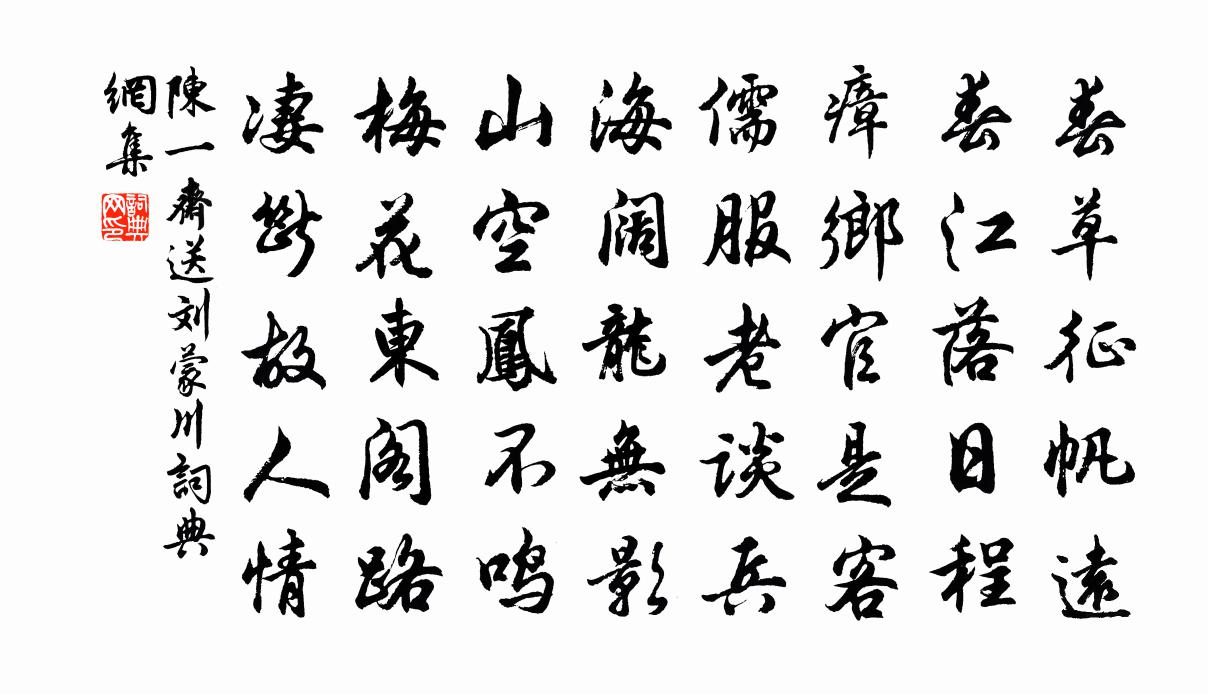 春草征帆遠
春江落日程
瘴鄉官是客
儒服老談兵
海阔龍無影
山空鳳不鳴
梅花東阁路
淒斷故人情
陳一齋送刘蒙川詞典
網集
詞典网印